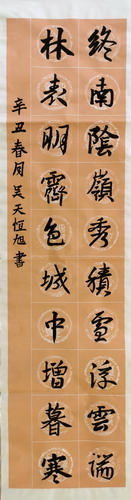 終南陰嶺秀積雪浮雲端
林表明霽色城中增暮寒
辛丑春月吴天恒旭書